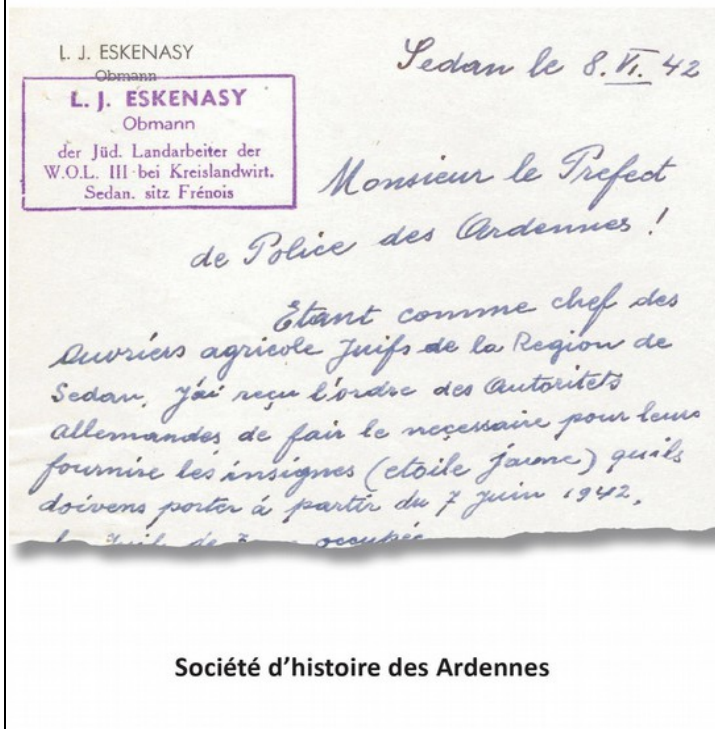 L. J. ESKENASY
Obmann
L. J. ESKENASY
Obmann
der Jüd. Landarbeiter der
W.O.L. III bei Kreislandwirt.
Sedan. sitz Frénois
Sedan le 8. VI. 42
Monsieur le Prefect
de Police des Ardennes !
Etant comme chef des
Ouvriérs agricole Juifs de la Region de
Sedan, j'ai reçu l'ordre des Autoritets
allemandes de fair le neçessaire pour leurs
fournire les insignes (etoile jaune) quils
doivens porter á partir du 7 Juin 1942,
occupée
Société d'histoire des Ardennes